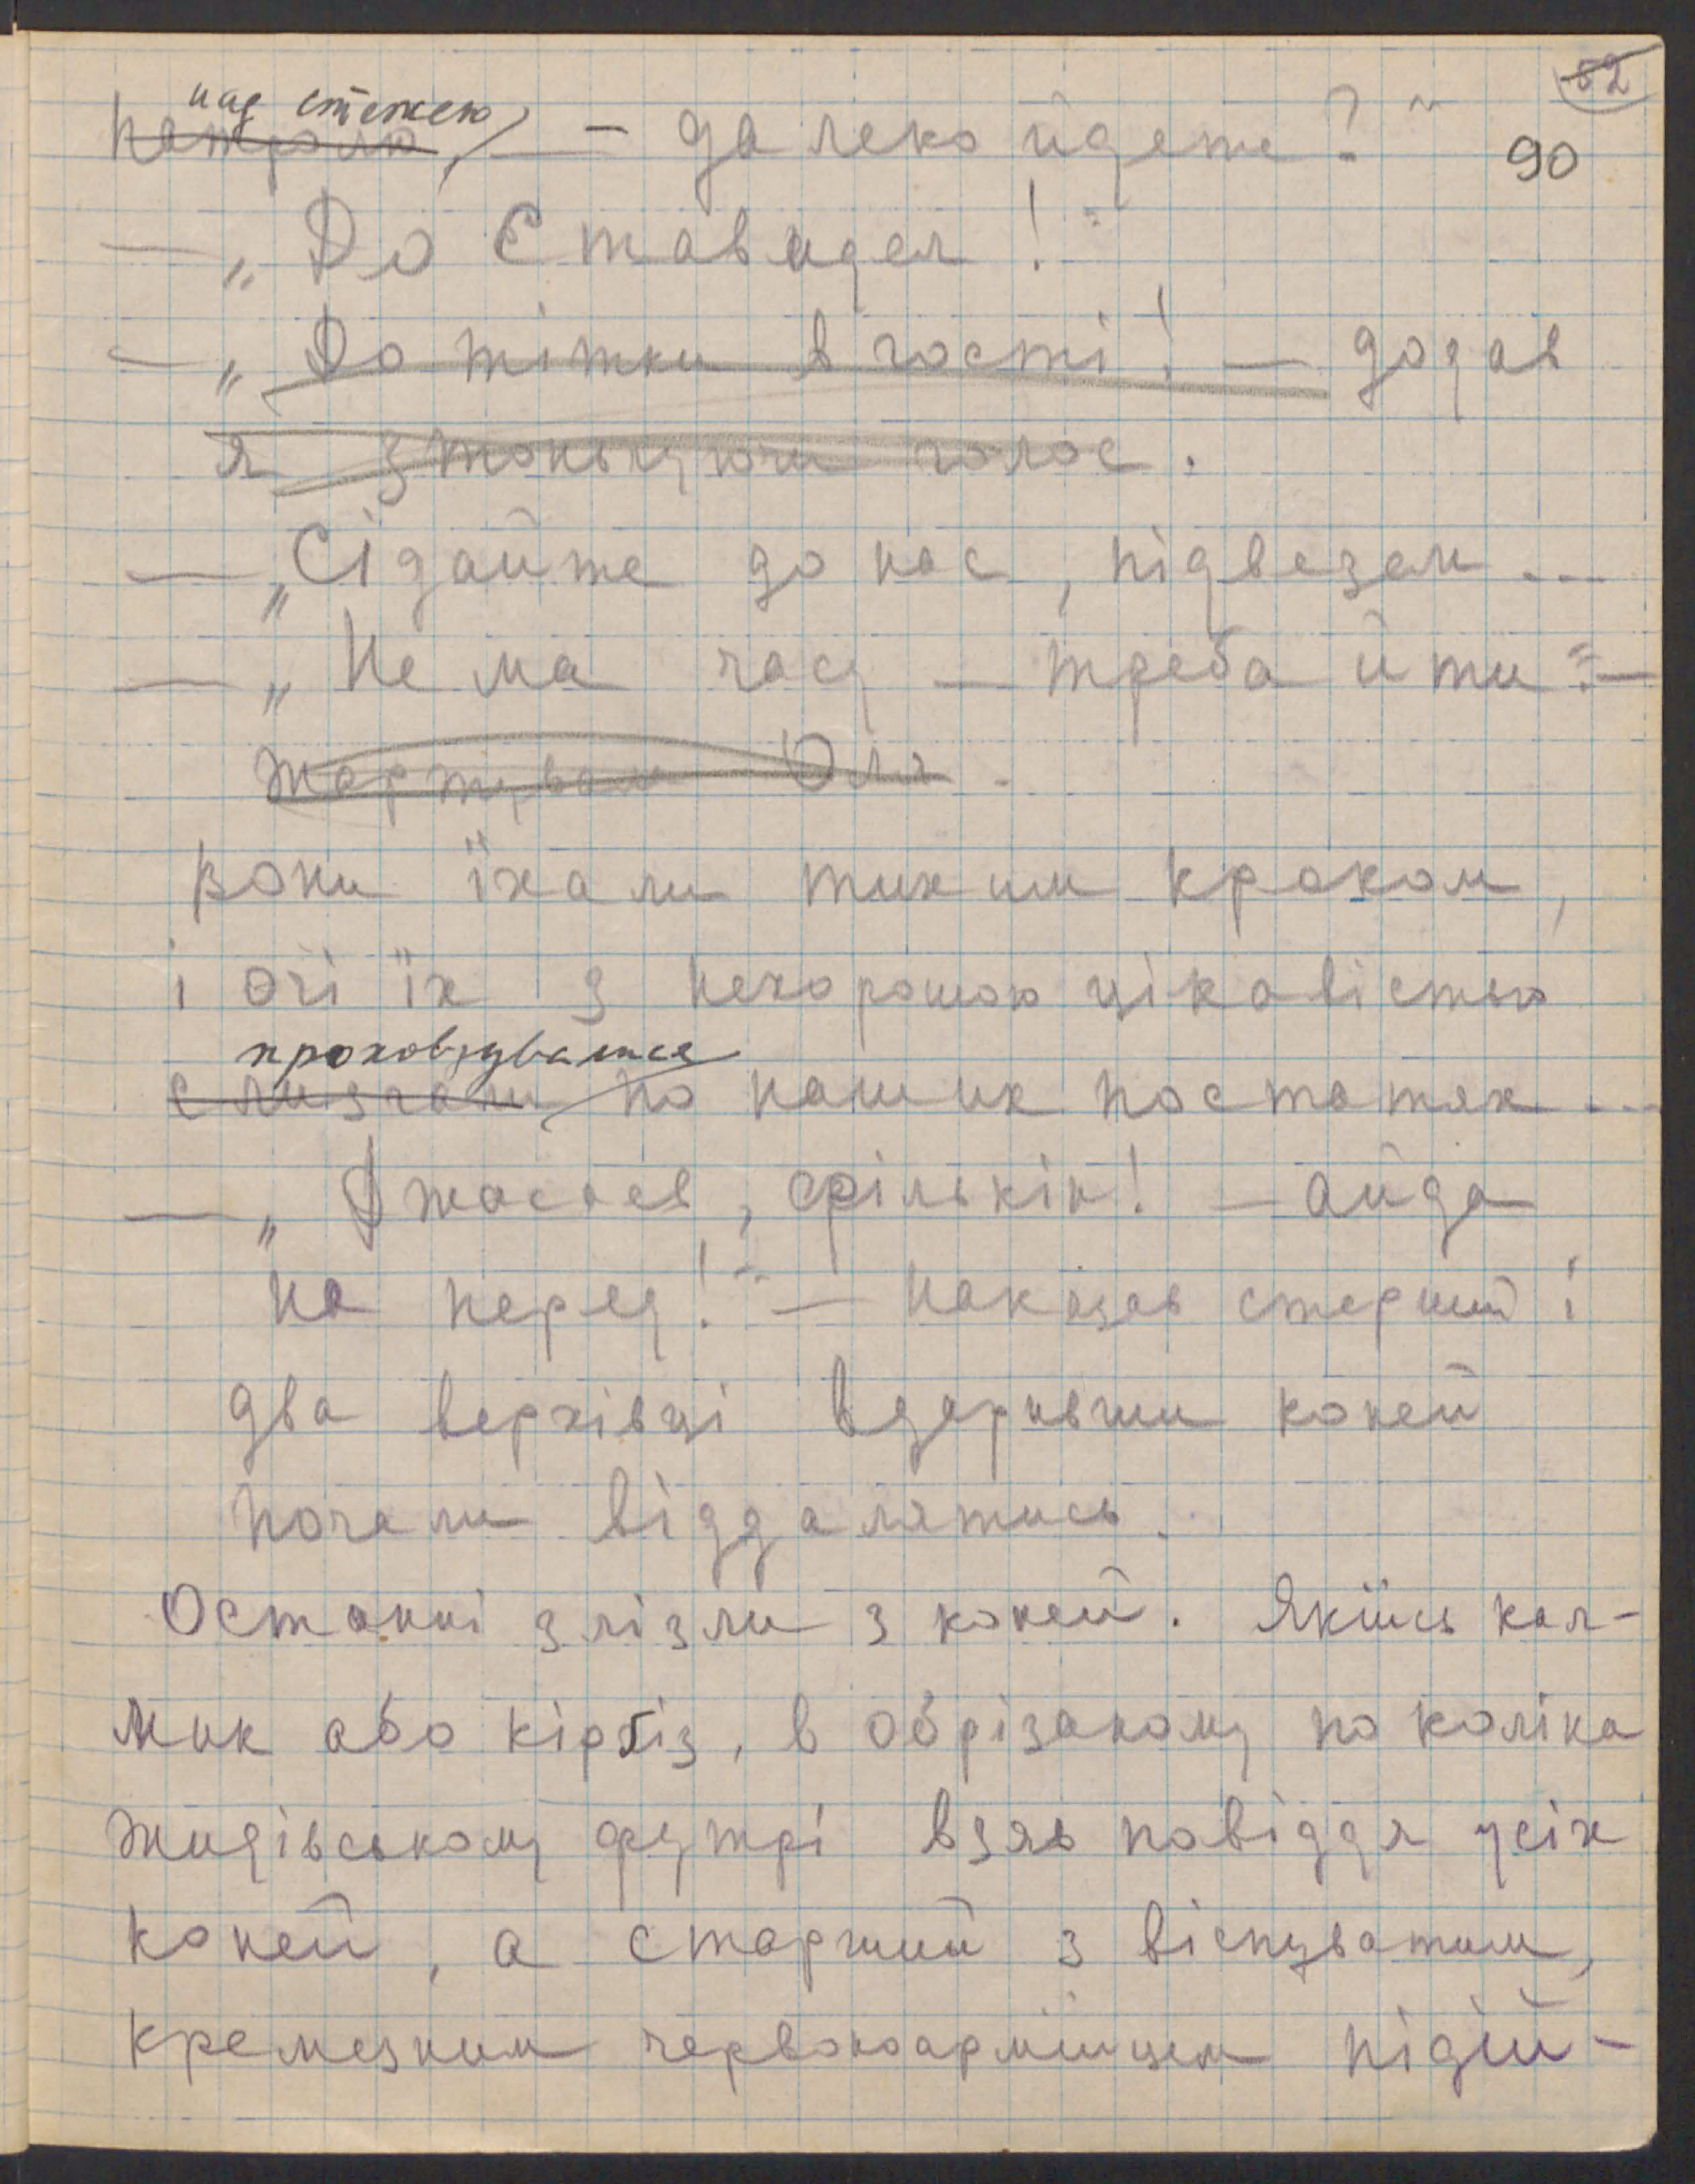 52
90
над стежею
патроля, — далеко йдете?"
— „До Ставидел!"
— „До тітки в гості! — додав
я зтонькуючи голос.
— „Сідайте до нас, підвезем ...
— „Не ма часу — треба йти" —
жартувала Оля.
Вони їхали тихим кроком,
і очі їх з нехорошою цікавістю
проховзувалися
слизгали по наших постатях ...
— „Джасаєв, Фількін! — айда
на перед!" — наказав старший і
два верхівці вдаривши коней
почали віддалятись.
Останні злізли з коней. Якийсь кал-
мик або кіргіз, в обрізаному по коліна
жидівському футрі взяв повіддя усіх
коней, а старший з віспуватим,
кремезним червоноармійцем підій-